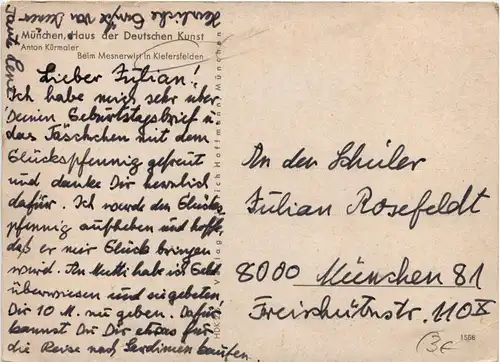 Herzliche Grüße von Deiner
Tante Rena
München, Haus der Deutschen Kunst
Anton Kürmaier
Beim Mesnerwirt in Kiefersfelden
Lieber Julian!
Ich habe mich sehr über
Deinen Geburtstagsbrief u
das Täschchen mit dem
Glückspfennig gefreut
und danke Dir herzlich
dafür. Ich werde den Glücks
pfennig aufheben und hoffe,
daß er mir Glück bringen
wird. An Mutti habe ich Geld
überwiesen und sie gebeten,
Dir 10 M. zu geben. Dafür
kannst Du Dir etwas für
die Reise nach Sardinien kaufen.
HDK
Verlag Heinrich Hoffmann, München
An den Schüler
Julian Rosefeldt
8000 München 81
Freischützstr. 110 X
3€
1506